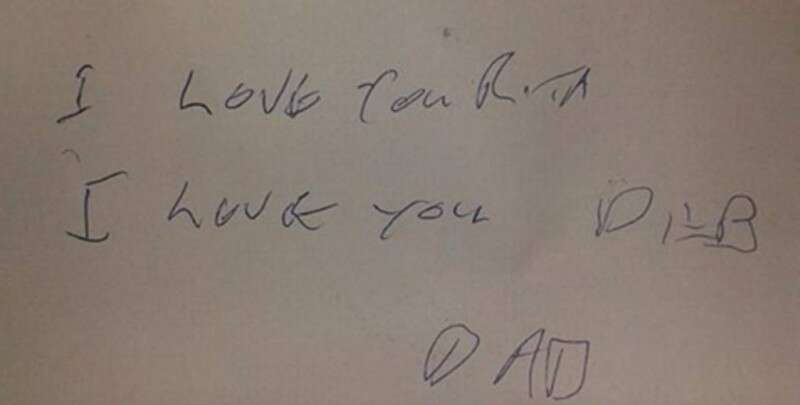 I LOVE You RITA
I LOVE you
DAD